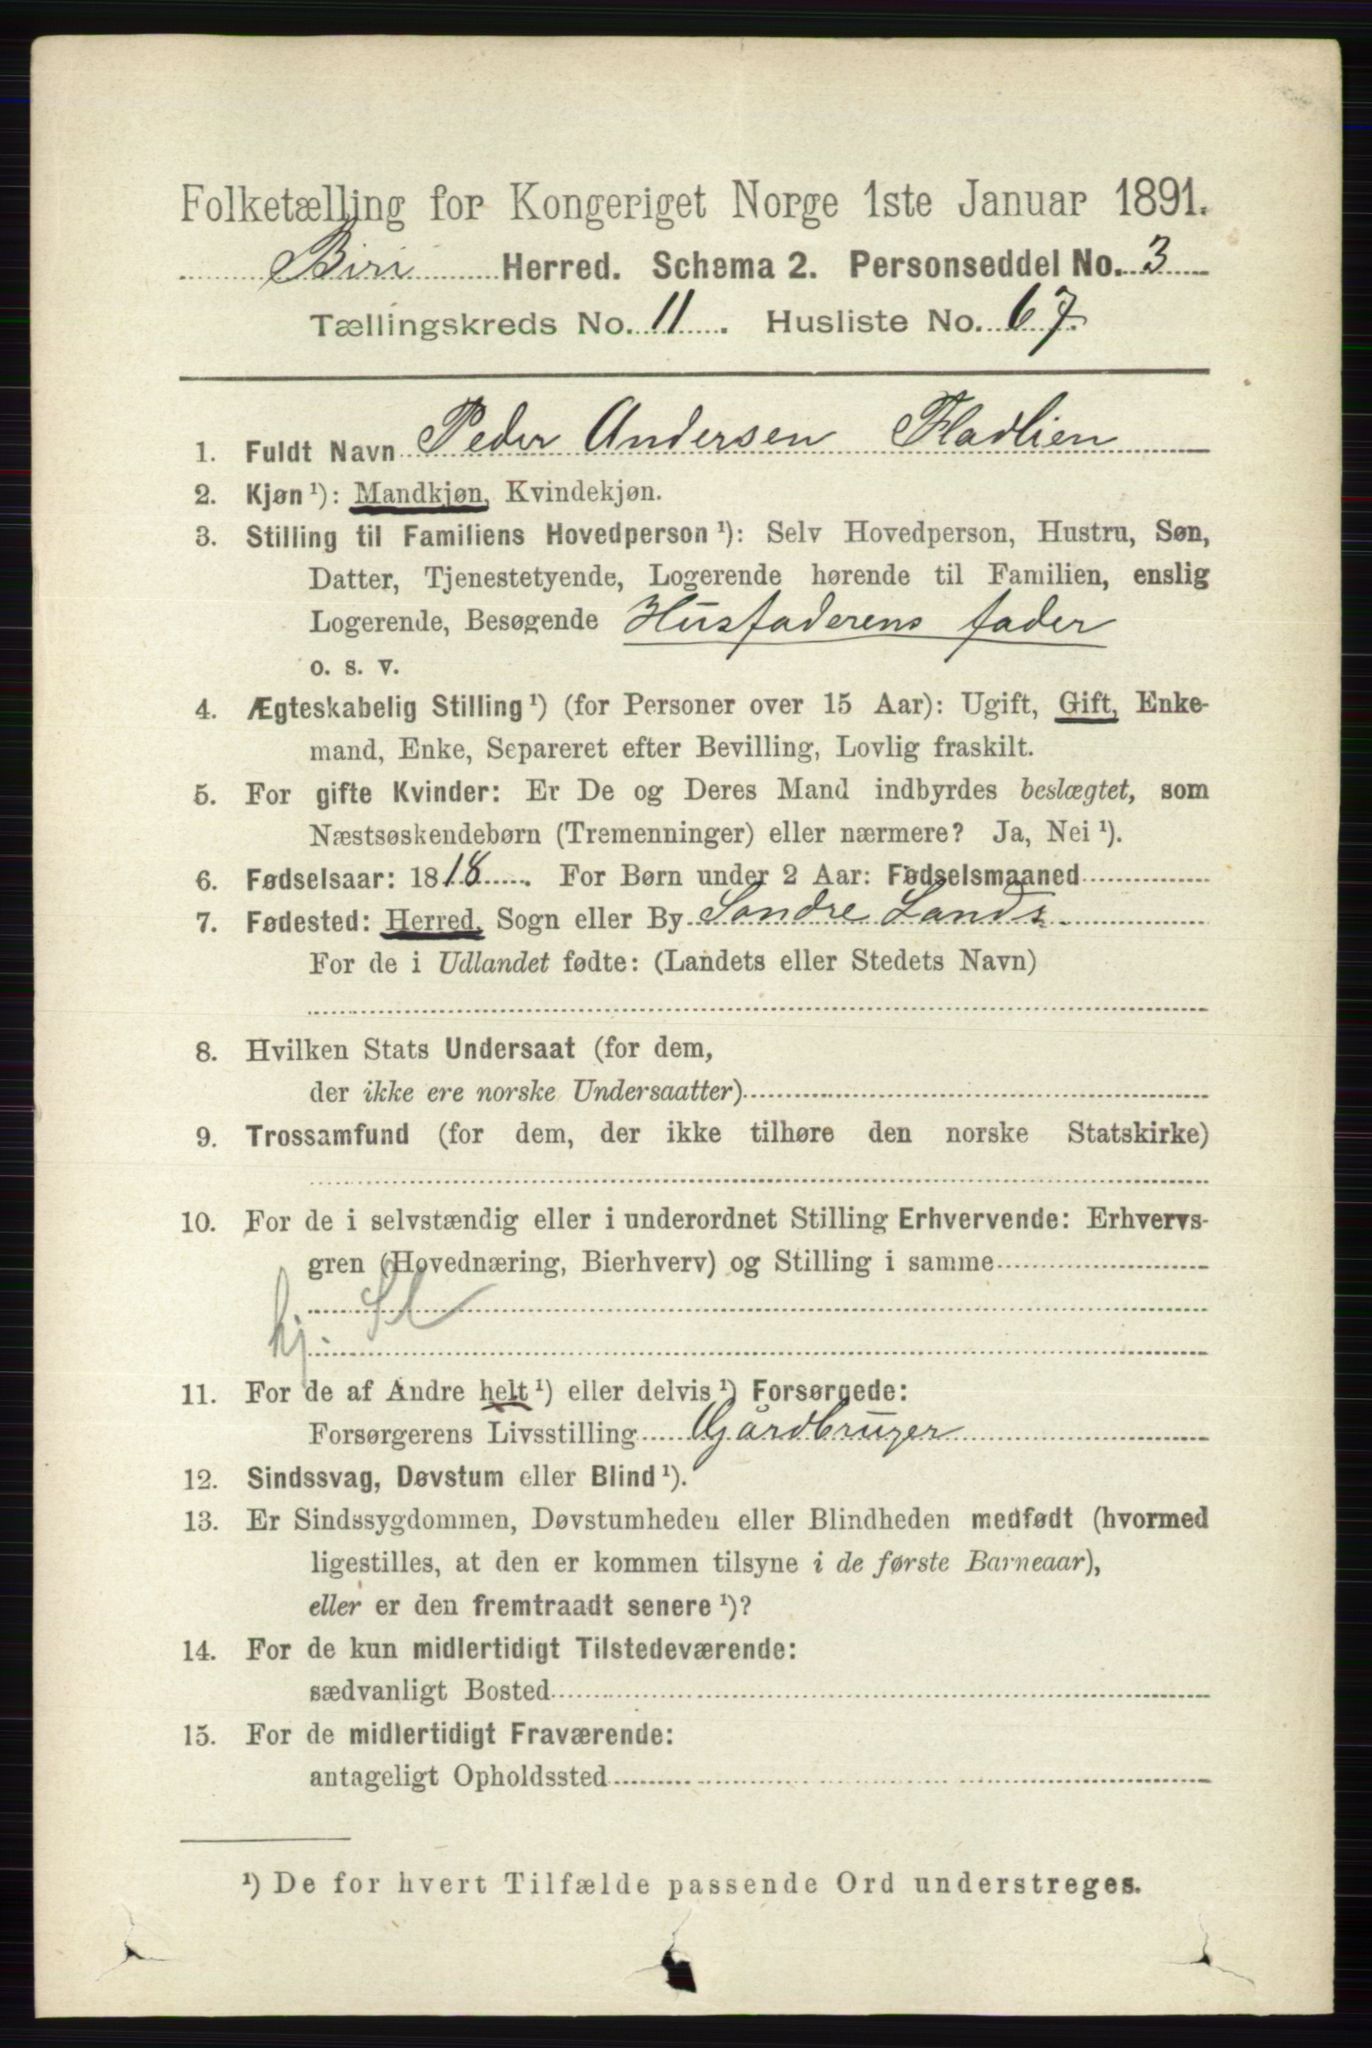 Folketælling for Kongeriget Norge 1ste Januar 1891.
Biri Herred. Schema 2. Personseddel No. 3
Tællingskreds No. 11. Husliste No. 67.
1. Fuldt Navn Peder Andersen Fladlien
2. Kjøn ¹): Mandkjøn, Kvindekjøn.
3. Stilling til Familiens Hovedperson ¹): Selv Hovedperson, Hustru, Søn,
Datter, Tjenestetyende, Logerende hørende til Familien, enslig
Logerende, Besøgende Husfaderens fader
o. s. v.
4. Ægteskabelig Stilling ¹) (for Personer over 15 Aar): Ugift, Gift, Enke-
mand, Enke, Separeret efter Bevilling, Lovlig fraskilt.
5. For gifte Kvinder: Er De og Deres Mand indbyrdes beslægtet, som
Næstsøskendebørn (Tremenninger) eller nærmere? Ja, Nei ¹).
6. Fødselsaar: 1818. For Børn under 2 Aar: Fødselsmaaned
7. Fødested: Herred, Sogn eller By Søndre Lands.
For de i Udlandet fødte: (Landets eller Stedets Navn)
8. Hvilken Stats Undersaat (for dem,
der ikke ere norske Undersaatter)
9. Trossamfund (for dem, der ikke tilhøre den norske Statskirke)
10. For de i selvstændig eller i underordnet Stilling Erhvervende: Erhvervs-
gren (Hovednæring, Bierhverv) og Stilling i samme
hj.
11. For de af Andre helt ¹) eller delvis ¹) Forsørgede:
Forsørgerens Livsstilling Gårdbruger
12. Sindssvag, Døvstum eller Blind ¹).
13. Er Sindssygdommen, Døvstumheden eller Blindheden medfødt (hvormed
ligestilles, at den er kommen tilsyne i de første Barneaar),
eller er den fremtraadt senere ¹)?
14. For de kun midlertidigt Tilstedeværende:
sædvanligt Bosted
15. For de midlertidigt Fraværende:
antageligt Opholdssted
¹) De for hvert Tilfælde passende Ord understreges.